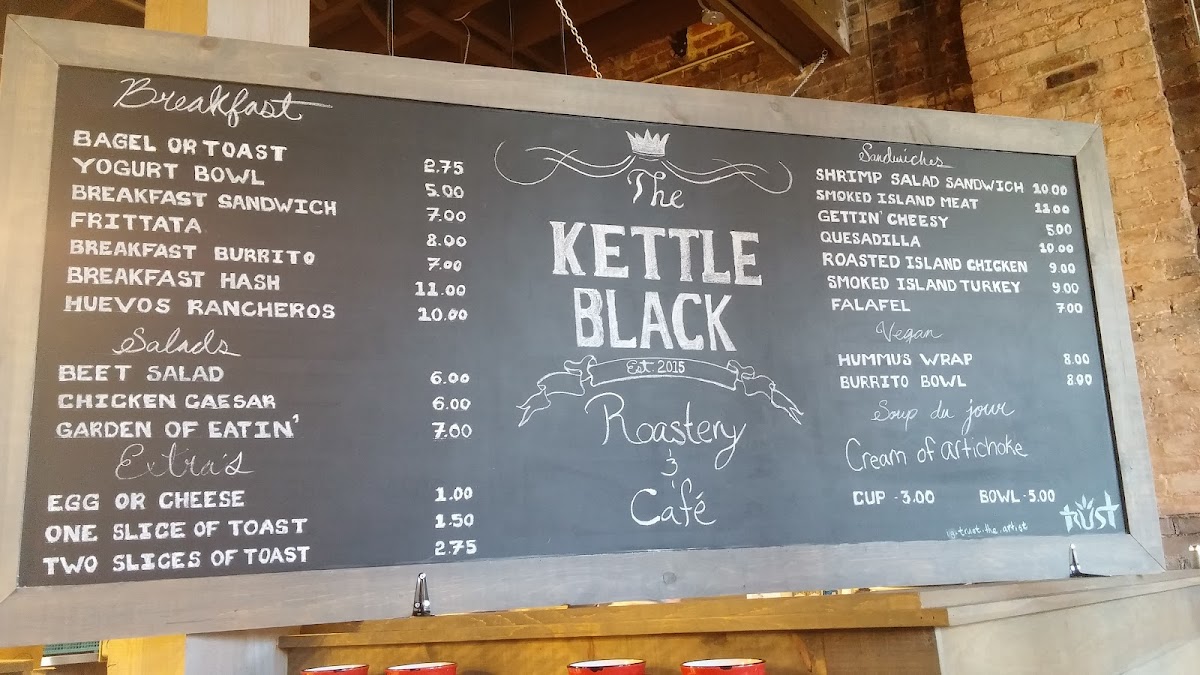 Breakfast
BAGEL OR TOAST 2.75
YOGURT BOWL 5.00
BREAKFAST SANDWICH 7.00
FRITTATA 8.00
BREAKFAST BURRITO 7.00
BREAKFAST HASH 11.00
HUEVOS RANCHEROS 10.00
Salads
BEET SALAD 6.00
CHICKEN CAESAR 6.00
GARDEN OF EATIN' 7.00
Extra's
EGG OR CHEESE 1.00
ONE SLICE OF TOAST 1.50
TWO SLICES OF TOAST 2.75
The
KETTLE
BLACK
Est. 2015
Roastery
&
Café
Sandwiches
SHRIMP SALAD SANDWICH 10.00
SMOKED ISLAND MEAT 11.00
GETTIN' CHEESY 5.00
QUESADILLA 10.00
ROASTED ISLAND CHICKEN 9.00
SMOKED ISLAND TURKEY 9.00
FALAFEL 7.00
Vegan
HUMMUS WRAP 8.00
BURRITO BOWL 8.00
Soup du jour
Cream of artichoke
CUP - 3.00 BOWL - 5.00
TRUST
@.trust.the.artist